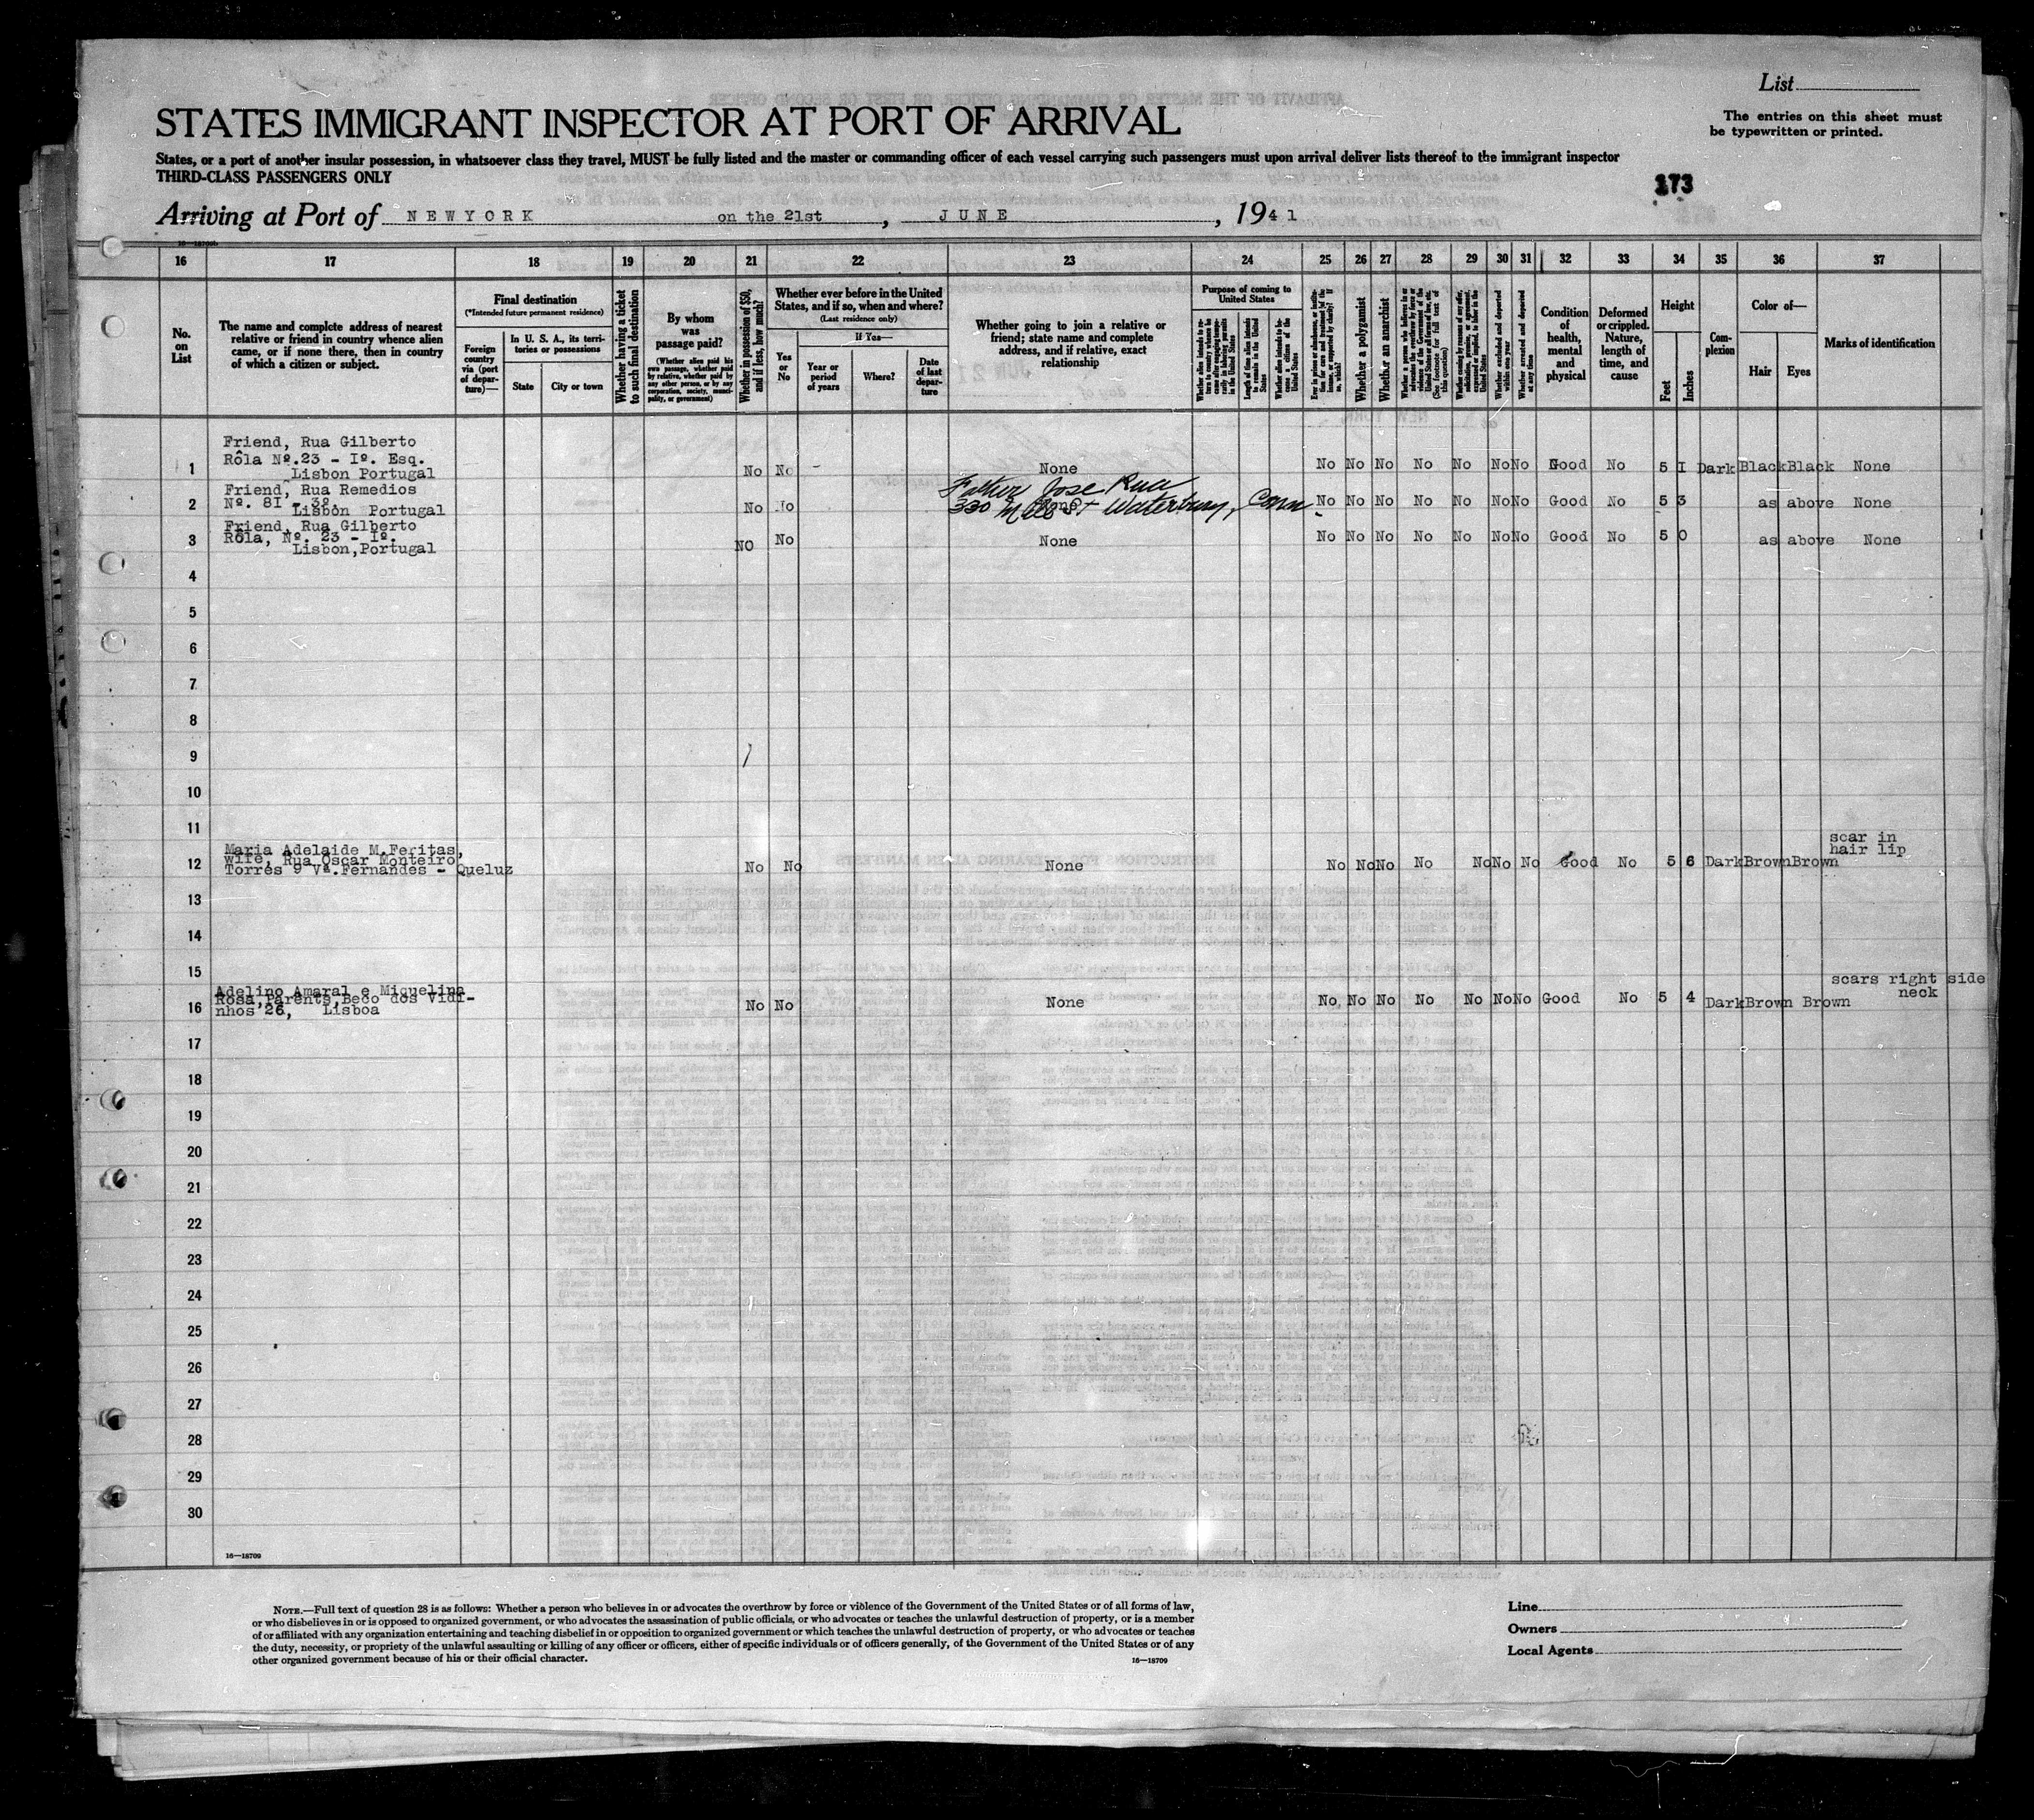 List
STATES IMMIGRANT INSPECTOR AT PORT OF ARRIVAL
The entries on this sheet must
be typewritten or printed.
States, or a port of another insular possession, in whatsoever class they travel, MUST be fully listed and the master or commanding officer of each vessel carrying such passengers must upon arrival deliver lists thereof to the immigrant inspector
THIRD-CLASS PASSENGERS ONLY
173
Arriving at Port of NEWYORK on the 21st, JUNE, 1941
16 17 18 19 20 21 22 23 24 25 26 27 28 29 30 31 32 33 34 35 36 37
No. on List
The name and complete address of nearest relative or friend in country whence alien came, or if none there, then in country of which a citizen or subject.
Final destination
(*Intended future permanent residence)
Foreign country via (port of departure)—
In U. S. A., its territories or possessions
State
City or town
Whether having a ticket to such final destination
By whom was passage paid?
(Whether alien paid his own passage, whether paid by relative, whether paid by any other person, or by any corporation, society, municipality, or government)
Whether in possession of $50, and if less, how much?
Whether ever before in the United States, and if so, when and where?
(Last residence only)
Yes or No
If Yes—
Year or period of years
Where?
Date of last departure
Whether going to join a relative or friend; state name and complete address, and if relative, exact relationship
Purpose of coming to United States
Length of time alien intends to remain in the United States
Whether alien intends to become a citizen of the United States
Whether a polygamist
Whether an anarchist
(See footnote for full text of this question)
Whether excluded and deported within one year
Whether arrested and deported at any time
Condition of health, mental and physical
Deformed or crippled. Nature, length of time, and cause
Height
Feet
Inches
Complexion
Color of—
Hair
Eyes
Marks of identification
Friend, Rua Gilberto
Rôla Nº.23 - Iº. Esq.
1 Lisbon Portugal No No - None No No No No No No No Good No 5 I Dark Black Black None
Friend, Rua Remedios
Father Jose Rua
2 Nº. 8I - 3º. No No None No No No No No No No Good No 5 3 as above None
Lisbon Portugal
330 Mill St Waterbury, Conn.
Friend, Rua Gilberto
3 Rôla, Nº. 23 - Iº. NO No None No No No No No No No Good No 5 0 as above None
Lisbon, Portugal
4
5
6
7
8
9
10
11
scar in
hair lip
Maria Adelaide M.Feritas,
12 wife, Rua Oscar Monteiro No No None No No No No No No No Good No 5 6 Dark Brown Brown
Torres 9 Vª.Fernandes - Queluz
13
14
15
scars right side
neck
Adelino Amaral e Miquelina
Rosa,Parents,Beco dos Vidi-
16 nhos 26, Lisboa No No None No, No No No No No No Good No 5 4 Dark Brown Brown
17
18
19
20
21
22
23
24
25
26
27
28
29
30
16—18709
NOTE.—Full text of question 28 is as follows: Whether a person who believes in or advocates the overthrow by force or violence of the Government of the United States or of all forms of law,
or who disbelieves in or is opposed to organized government, or who advocates the assassination of public officials, or who advocates or teaches the unlawful destruction of property, or is a member
of or affiliated with any organization entertaining and teaching disbelief in or opposition to organized government or which teaches the unlawful destruction of property, or who advocates or teaches
the duty, necessity, or propriety of the unlawful assaulting or killing of any officer or officers, either of specific individuals or of officers generally, of the Government of the United States or of any
other organized government because of his or their official character.
16—18709
Line
Owners
Local Agents